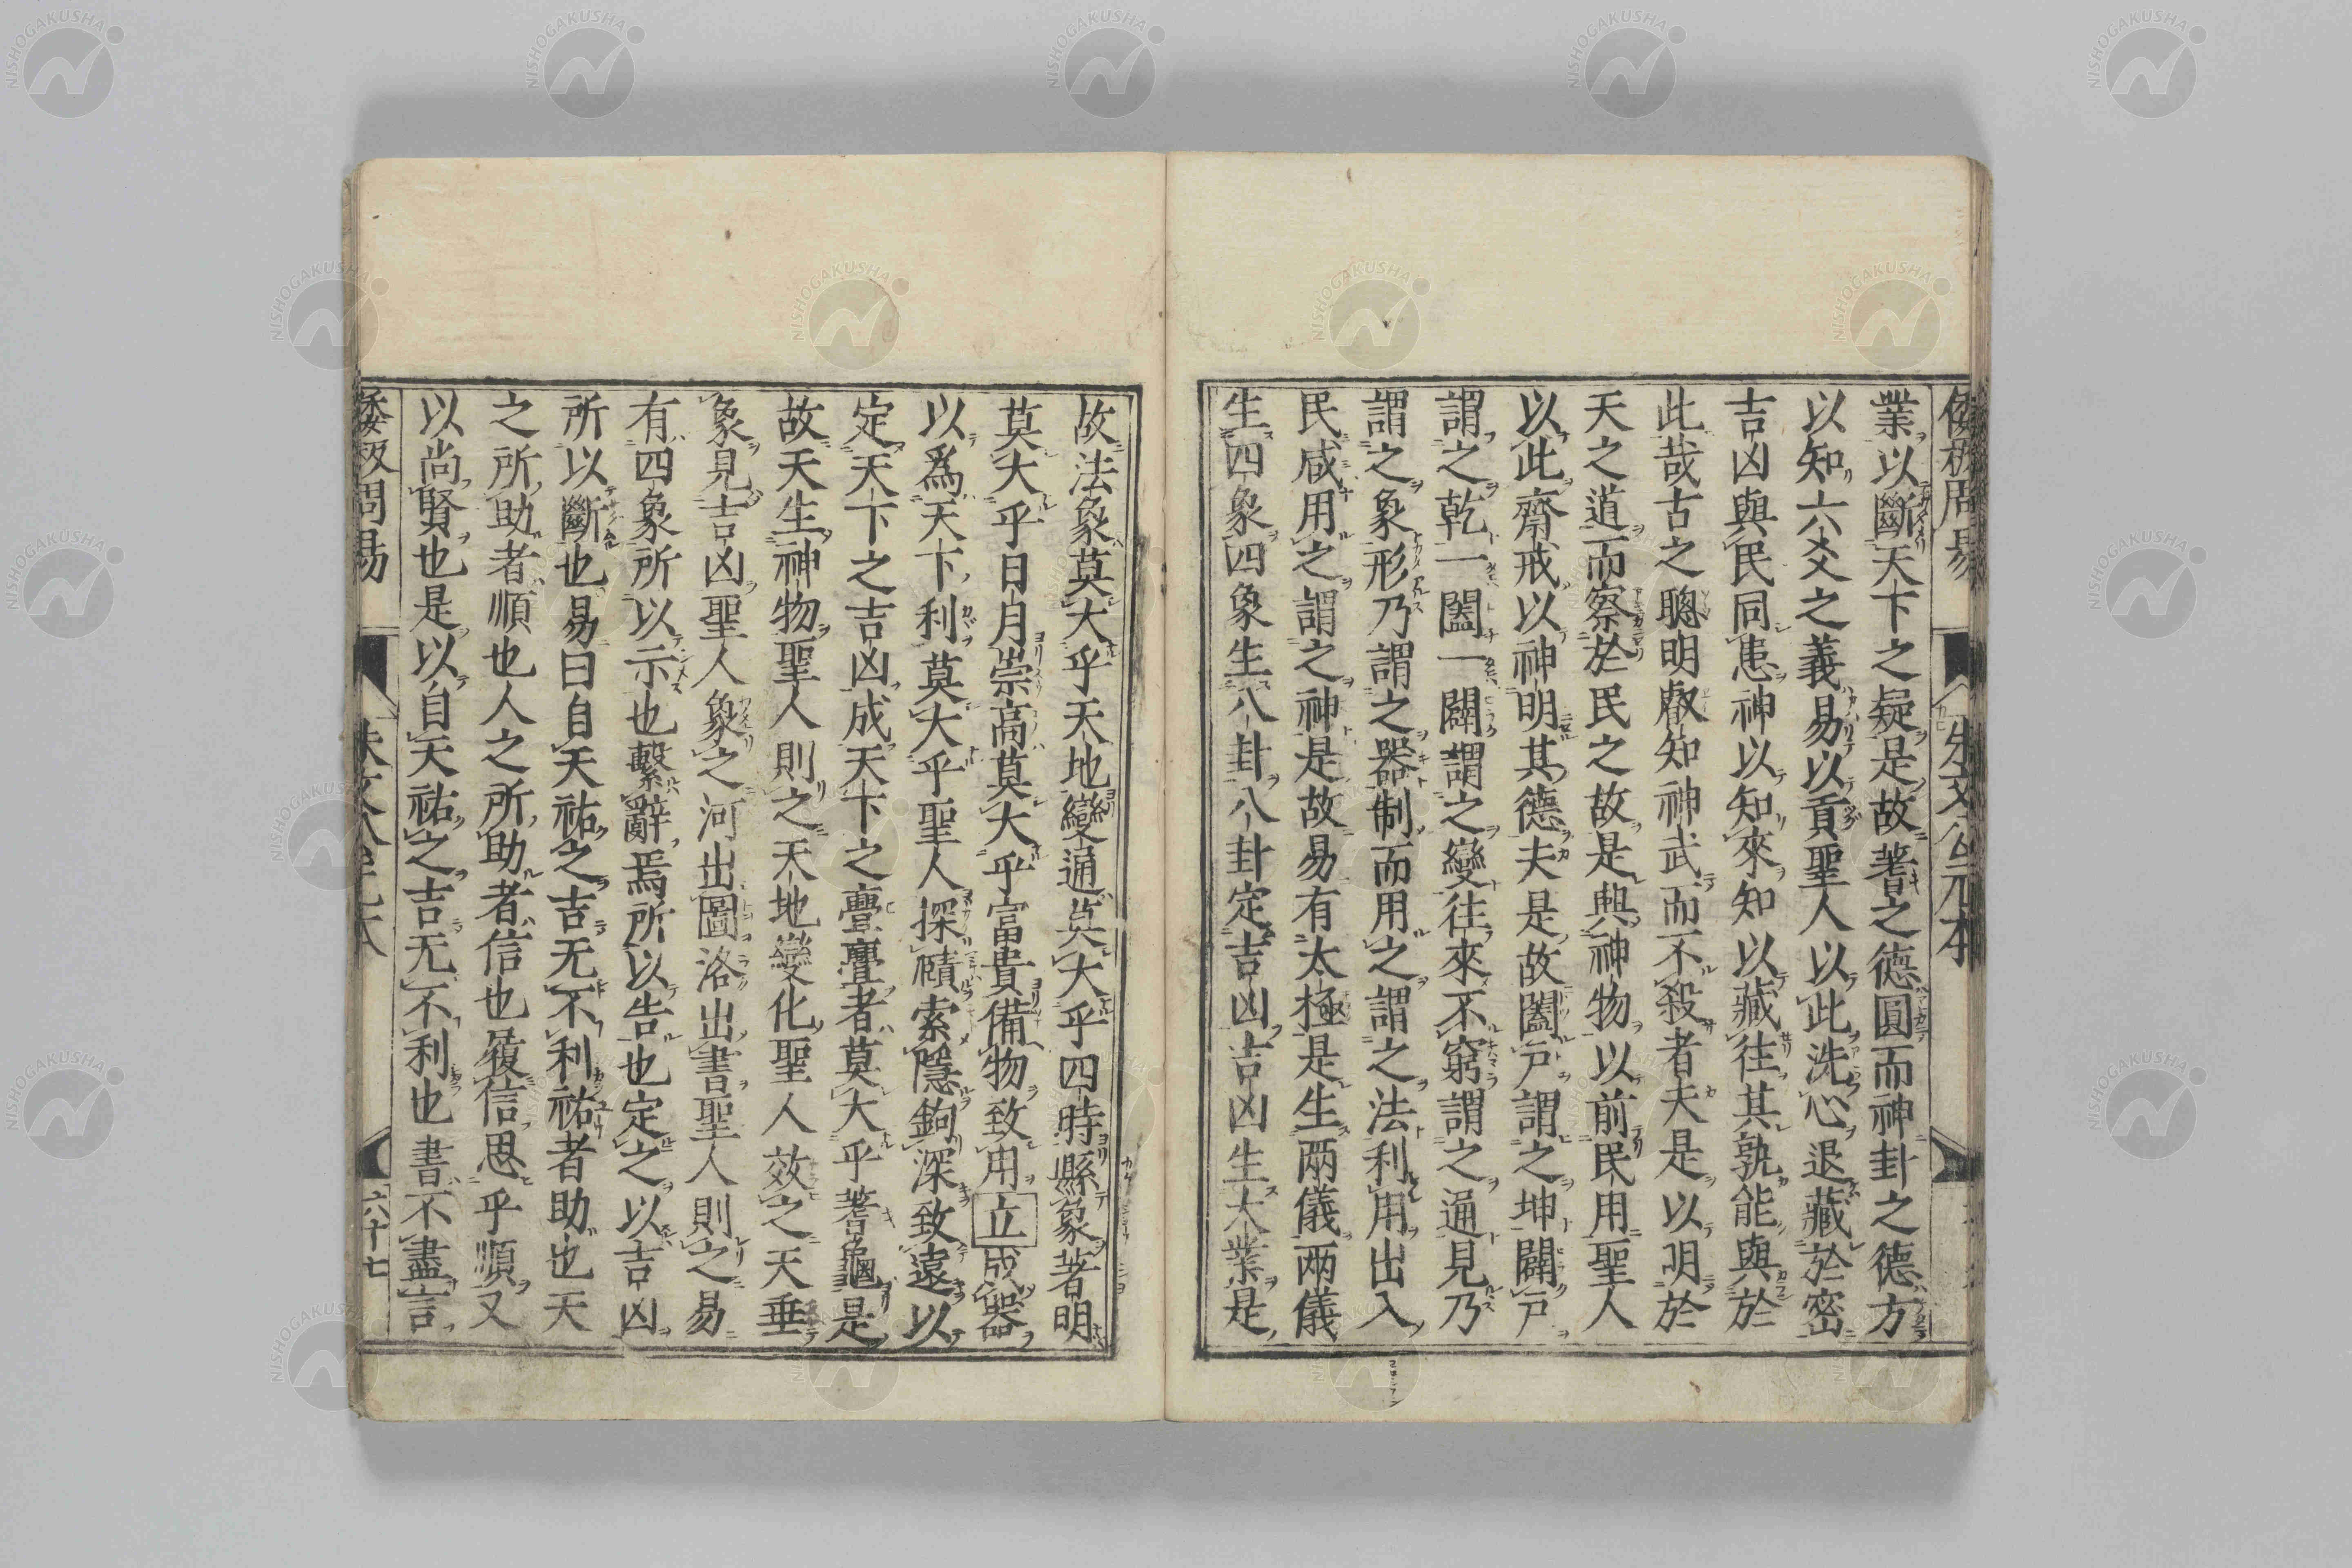 倭板周易　朱文公元本
業以斷天下之疑是故蓍之德圓而神卦之德方
以知六爻之義易以貢聖人以此洗心退藏於密
吉凶與民同患神以知來知以藏往其孰能與於
此哉古之聰明叡知神武而不殺者夫是以明於
天之道而察於民之故是興神物以前民用聖人
以此齋戒以神明其德夫是故闔戶謂之坤闢戶
謂之乾一闔一闢謂之變往來不窮謂之通見乃
謂之象形乃謂之器制而用之謂之法利用出入
民咸用之謂之神是故易有太極是生兩儀兩儀
生四象四象生八卦八卦定吉凶吉凶生大業是
故法象莫大乎天地變通莫大乎四時縣象著明
莫大乎日月崇高莫大乎富貴備物致用立成器
以爲天下利莫大乎聖人探賾索隱鉤深致遠以
定天下之吉凶成天下之亹亹者莫大乎蓍龜是
故天生神物聖人則之天地變化聖人效之天垂
象見吉凶聖人象之河出圖洛出書聖人則之易
有四象所以示也繫辭焉所以告也定之以吉凶
所以斷也易曰自天祐之吉无不利祐者助也天
之所助者順也人之所助者信也履信思乎順又
以尚賢也是以自天祐之吉无不利也書不盡言
倭板周易　朱文公元本　六十七
NISHOGAKUSHA